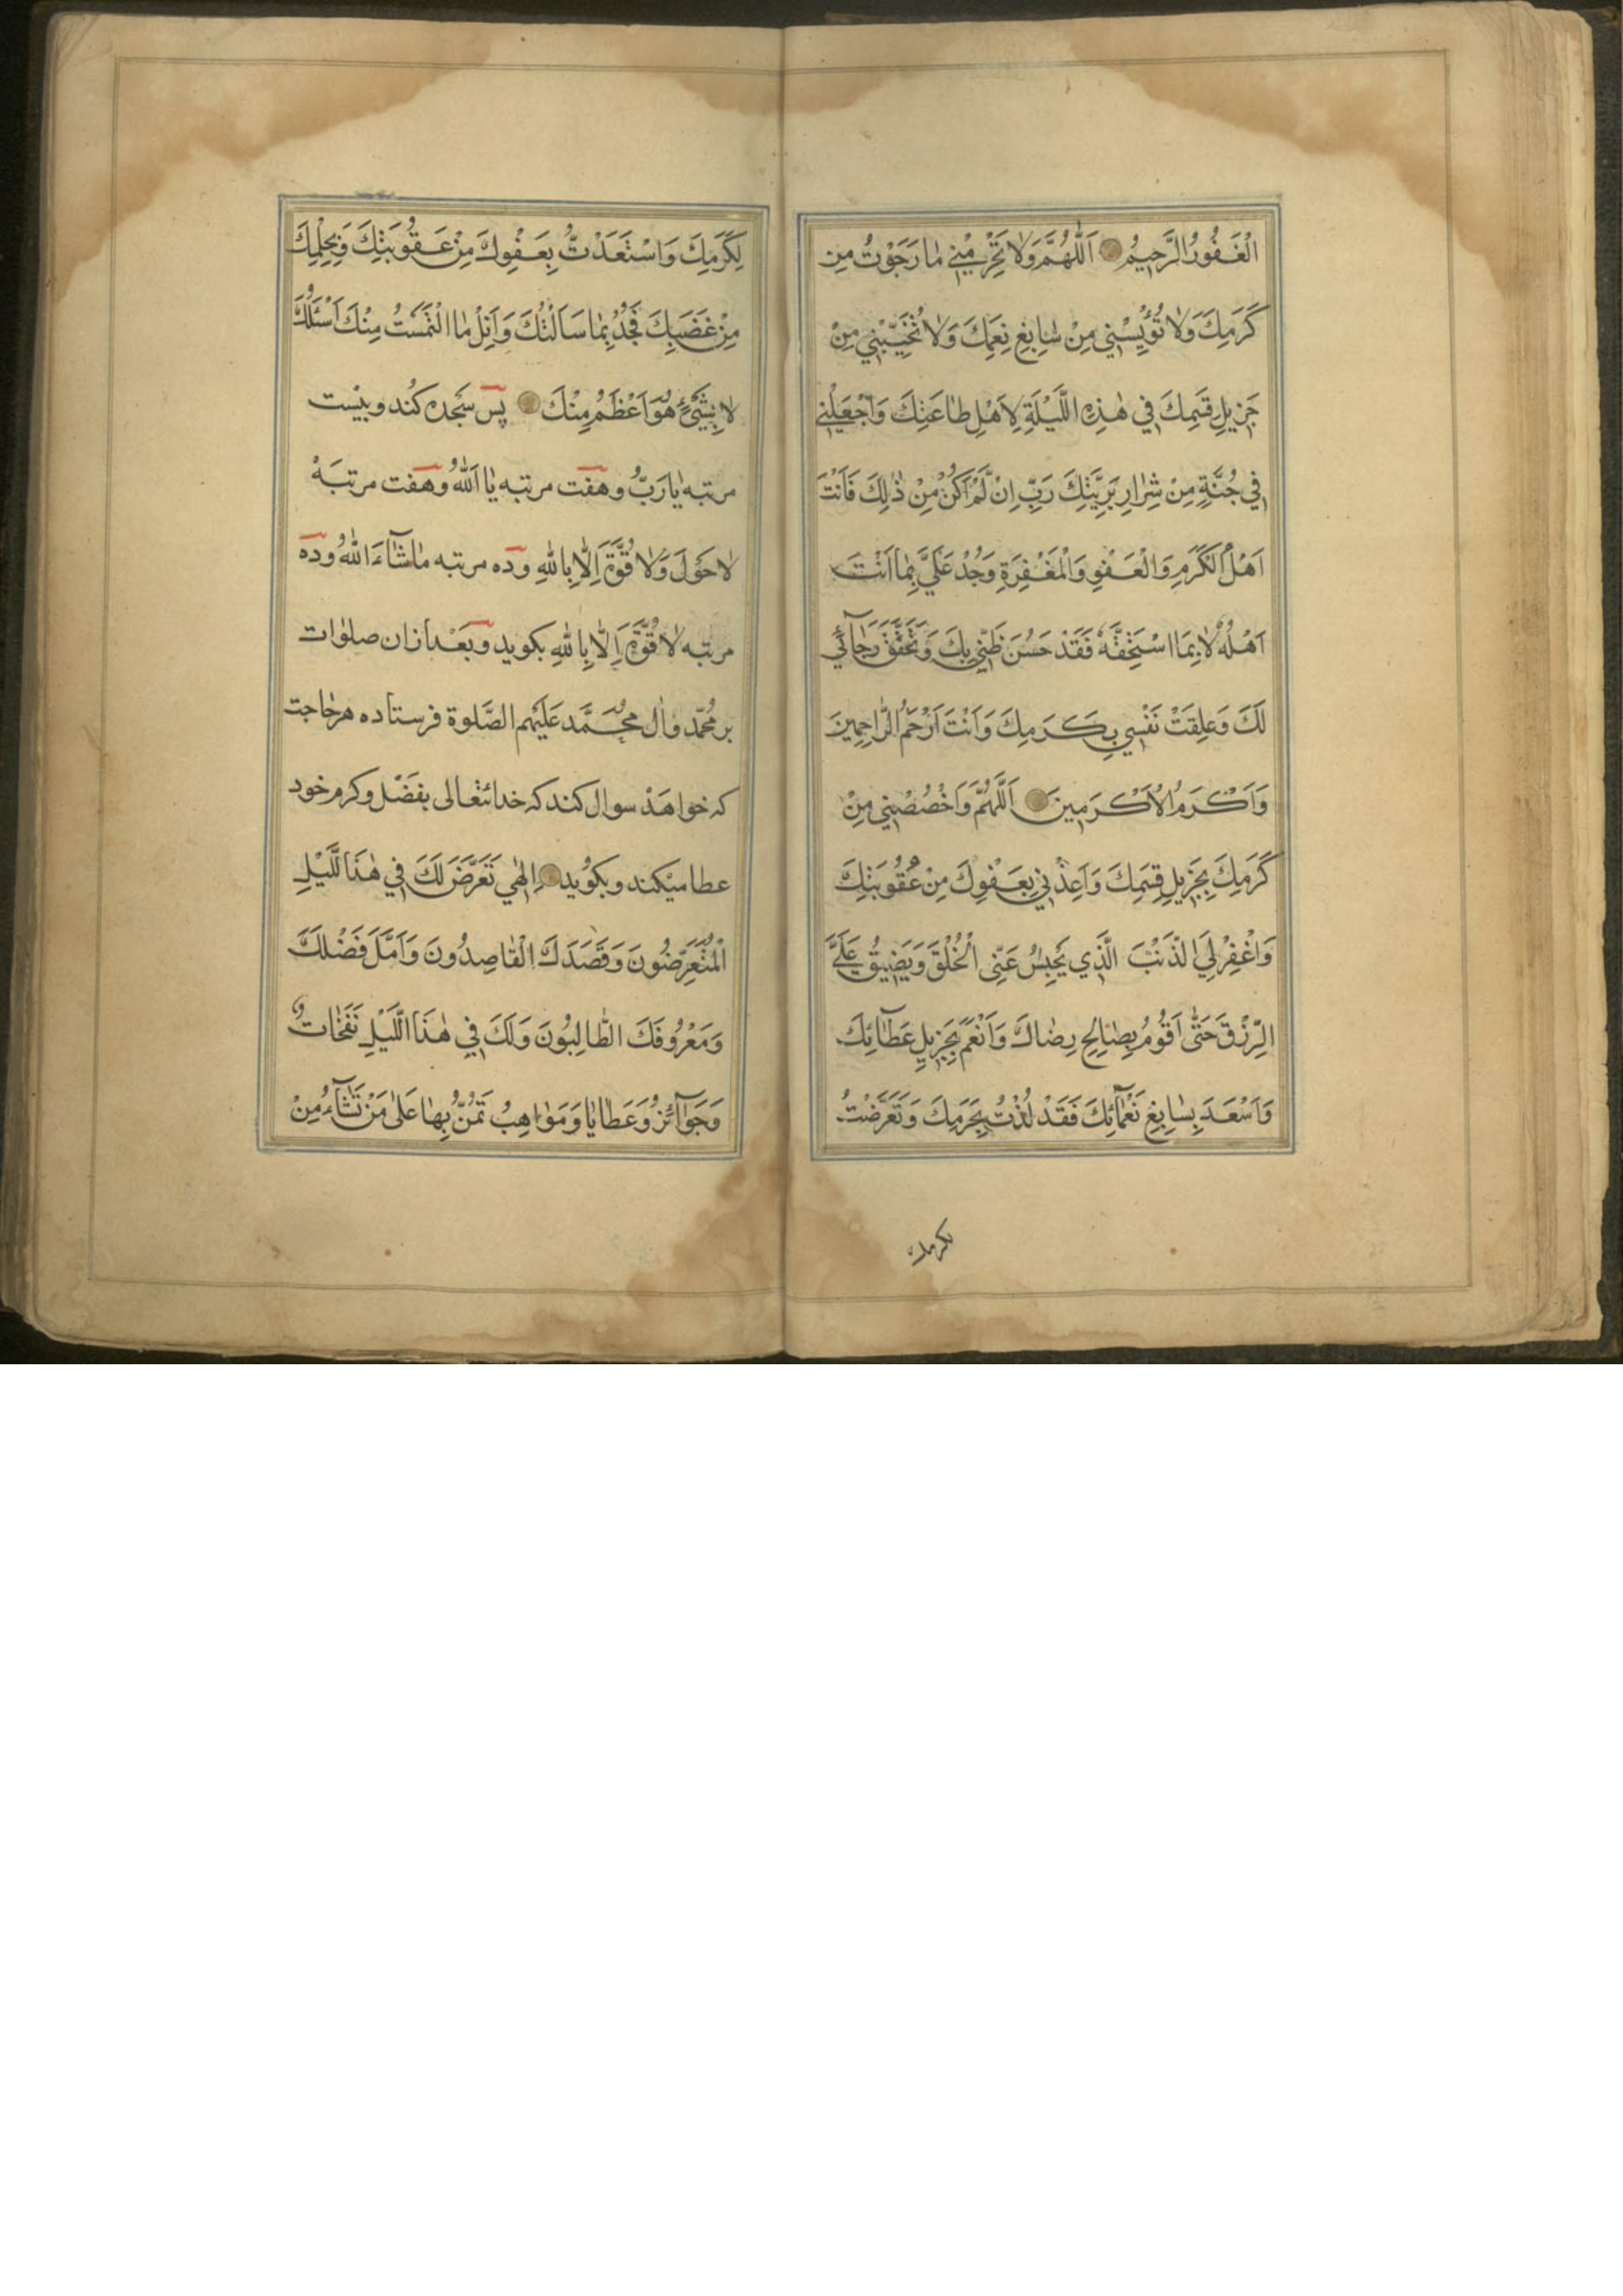 الْغَفُورُ الرَّحِيمُ اَللّٰهُمَّ وَلَا تَحْرِمْنِي مٰا رَجَوْتُ مِن
كَرَمِكَ وَلَا تُؤْيِسْنِي مِنْ سٰابِغِ نِعَمِكَ وَلَا تُخَيِّبْنِي مِنْ
جَزِيلِ قِسَمِكَ فِي هٰذِهِ اللَّيْلَةِ لِاَهْلِ طٰاعَتِكَ وَاجْعَلْنِي
فِي جُنَّةٍ مِنْ شِرٰارِ بَرِيَّتِكَ رَبِّ اِنْ لَمْ اَكُنْ مِنْ ذٰلِكَ فَاَنْتَ
اَهْلُ الْكَرَمِ وَالْعَفْوِ وَالْمَغْفِرَةِ وَجُدْ عَلَيَّ بِمٰا اَنْتَ
اَهْلُهُ لٰا بِمَا اسْتَحِقُّهُ فَقَدْ حَسُنَ ظَنِّي بِكَ وَتَحَقَّقَ رَجٰآئِي
لَكَ وَعَلِقَتْ نَفْسِي بِكَرَمِكَ وَاَنْتَ اَرْحَمُ الرّٰاحِمِينَ
وَاَكْرَمُ الْاَكْرَمِينَ اَللّٰهُمَّ وَاخْصُصْنِي مِنْ
كَرَمِكَ بِجَزِيلِ قِسَمِكَ وَاَعِذْنِي بِعَفْوِكَ مِنْ عُقُوبَتِكَ
وَاغْفِرْ لِيَ الذَّنْبَ الَّذِي يَحْبِسُ عَنِّي الْخُلُقَ وَيَضِيقُ عَلَيَّ
الرِّزْقَ حَتّٰى اَقُومُ بِصٰالِحِ رِضٰاكَ وَاَنْعَمَ بِجَزِيلِ عَطٰآئِكَ
وَاَسْعَدَ بِسٰابِغِ نَعْمٰآئِكَ فَقَدْ لُذْتُ بِحَرَمِكَ وَتَعَرَّضْتُ
لكرمك
لِكَرَمِكَ وَاسْتَعَذْتُ بِعَفْوِكَ مِنْ عَقُوبَتِكَ وَبِحِلْمِكَ
مِنْ غَضَبِكَ فَجُدْ بِمٰا سَاَلْتُكَ وَاَنِلْ مٰا الْتَمَسْتُ مِنْكَ اَسْئَلُكَ
لٰا بِشَيْءٍ هُوَ اَعْظَمُ مِنْكَ پس سَجده كند و بيست
مرتبه يٰا رَبُّ و هفت مرتبه يٰا اَللّٰهُ و هفت مرتبَهْ
لٰا حَوْلَ وَلٰا قُوَّةَ اِلَّا بِاللّٰهِ و ده مرتبه مٰا شٰآءَ اللّٰهُ و ده
مرتبه لٰا قُوَّةَ اِلَّا بِاللّٰهِ بكويد و بَعْد ازان صلوٰات
بر مُحمّد و اٰل مُحَمَّد عَلَيْهِم الصَّلوة فرستاده هر حٰاجت
كه خواهَد سوال كند كه خدايتعالى بفَضْل و كرم خود
عطا ميكند و بكويد اِلٰهِي تَعَرَّضَ لَكَ فِي هٰذَا اللَّيْلِ
الْمُتَعَرِّضُونَ وَقَصَدَكَ الْقٰاصِدُونَ وَاَمَّلَ فَضْلَكَ
وَمَعْرُوفَكَ الطّٰالِبُونَ وَلَكَ فِي هٰذَا اللَّيْلِ نَفَحٰاتٌ
وَجَوٰآئِزُ وَعَطٰايٰا وَمَوٰاهِبُ تَمُنُّ بِهٰا عَلىٰ مَنْ تَشٰآءُ مِنْ